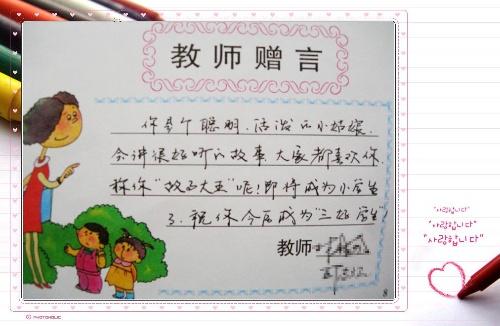 教师赠言
你是个聪明、活泼的小姑娘，
会讲很好听的故事，大家都喜欢你，
称你“故事大王”呢！即将成为小学生
了，祝你今后成为“三好学生”！
教师
8
"사랑합니다"
"사랑합니다"
"사랑합니다"
PHOTOHOLIC